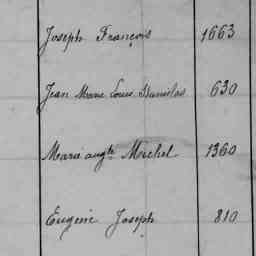 Joseph François 1663
Jean Marie Louis Stanislas 630
Marie augte Michel 1360
Eugène Joseph 810